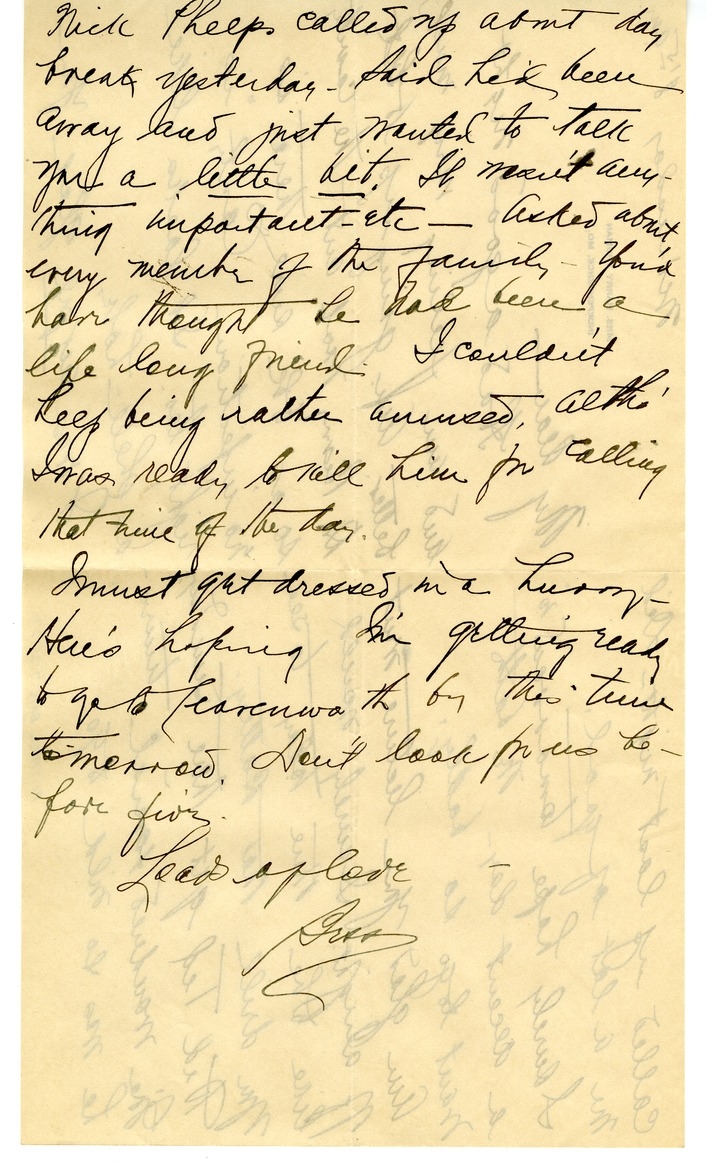 Nick Phelps called up about day
break yesterday - Said he'd been
away and just wanted to talk
you a little bit. It wasn't any-
thing important - etc — Asked about
every member of the family - You'd
have thought he had been a
life long friend. I couldn't
keep being rather amused, altho'
I was ready to kill him for calling
that time of the day.
I must get dressed in a hurry -
Here's hoping I'm getting ready
to go to Leavenwo th by this time
tomorrow. Don't look for us be-
fore five.
Loads of love -
Bess